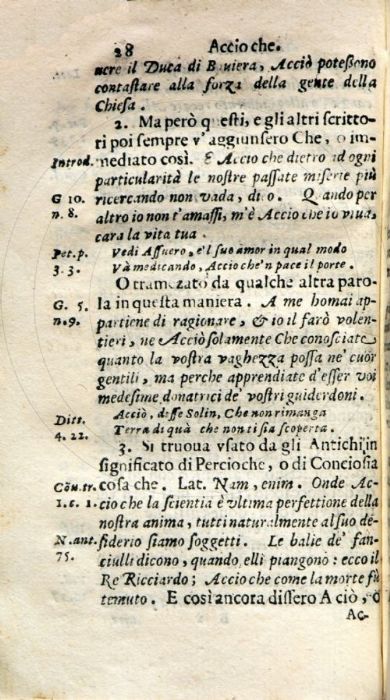 28 Accio che.
uere il Duca di Bauiera, Acciò poteßeno
contastare alla forza della gente della
Chiesa.
2. Ma però questi, e gli altri scritto-
ri poi sempre v'aggiunsero Che, o im-
Introd. mediato così. E Accio che dietro ad ogni
particularità le nostre passate miserie più
G 10. ricercando non vada, dico. Quando per
n. 8. altro io non t'amassi, m'è Accio che io viua,
cara la vita tua.
Pet. p. Vedi Assuero, e'l suo amor in qual modo
3. 3. Và medicando, Accio che'n pace il porte.
O tramezato da qualche altra paro-
G. 5. la in questa maniera. A me homai ap-
n. 9. partiene di ragionare, & io il farò volen-
tieri, ne Acciò solamente Che conosciate
quanto la vostra vaghezza possa ne' cuor
gentili, ma perche apprendiate d'esser voi
medesime donatrici de' vostri guiderdoni.
Ditt. Acciò, disse Solin, Che non rimanga
4. 22. Terra di quà che non ti sia scoperta.
3. Si truoua vsato da gli Antichi in
significato di Percioche, o di Conciosia
Cōu. tr. cosa che. Lat. Nam, enim. Onde Ac-
1. c. 1. cio che la scientia è vltima perfettione della
nostra anima, tutti naturalmente al suo de-
N. ant. siderio siamo soggetti. Le balie de' fan-
75. ciulli dicono, quando elli piangono: ecco il
Re Ricciardo; Accio che come la morte fù
temuto. E così ancora dissero A ciò, o
Ac-